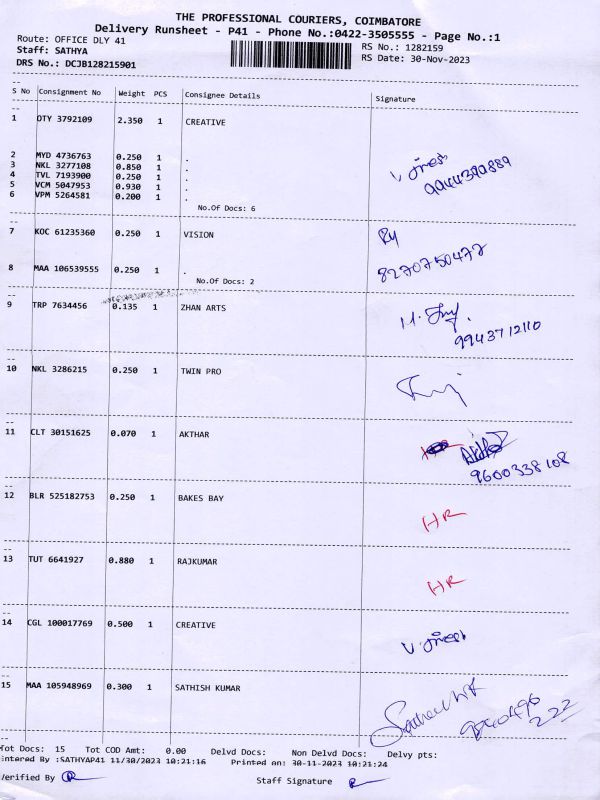 THE PROFESSIONAL COURIERS, COIMBATORE
Delivery Runsheet - P41 - Phone No.:0422-3505555 - Page No.:1
Route: OFFICE DLY 41
RS No.: 1282159
Staff: SATHYA
RS Date: 30-Nov-2023
DRS No.: DCJB128215901
S No Consignment No Weight PCS Consignee Details Signature
1 DTY 3792109 2.350 1 CREATIVE
2 MYD 4736763 0.250 1 .
3 NKL 3277108 0.850 1 .
4 TVL 7193900 0.250 1 .
5 VCM 5047953 0.930 1 .
6 VPM 5264581 0.200 1 .
No.Of Docs: 6
7 KOC 61235360 0.250 1 VISION
8270750477
8 MAA 106539555 0.250 1 .
No.Of Docs: 2
9 TRP 7634456 0.135 1 ZHAN ARTS
9943712110
10 NKL 3286215 0.250 1 TWIN PRO
11 CLT 30151625 0.070 1 AKTHAR
9600338108
12 BLR 525182753 0.250 1 BAKES BAY
HR
13 TUT 6641927 0.880 1 RAJKUMAR
HR
14 CGL 100017769 0.500 1 CREATIVE
15 MAA 105948969 0.300 1 SATHISH KUMAR
Tot Docs: 15 Tot COD Amt: 0.00 Delvd Docs: Non Delvd Docs: Delvy pts:
ntered By :SATHYAP41 11/30/2023 10:21:16 Printed on: 30-11-2023 10:21:24
Verified By
Staff Signature